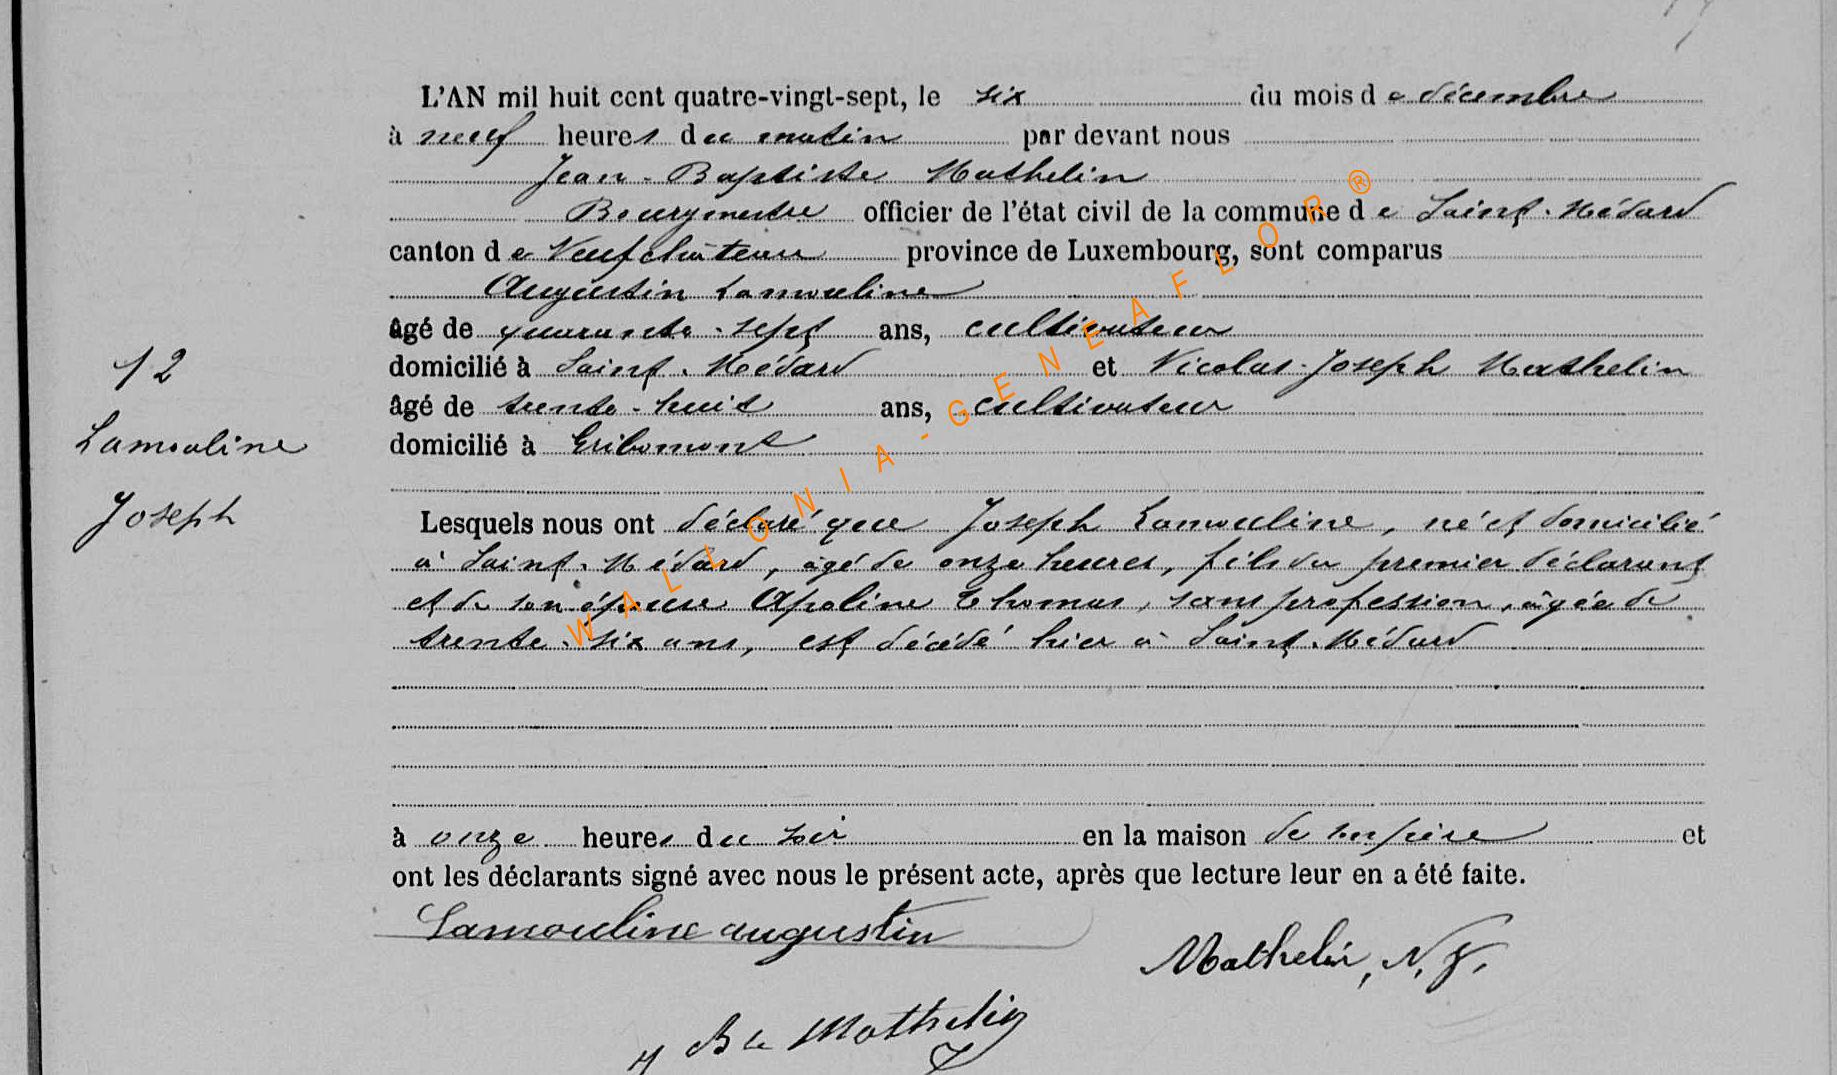 L'AN mil huit cent quatre-vingt-sept, le six du mois de décembre
à neuf heures du matin par devant nous
Jean-Baptiste Mathelin
Bourgmestre officier de l'état civil de la commune de Saint-Médard
canton de Neufchâteau province de Luxembourg, sont comparus
Augustin Lamouline
âgé de quarante-sept ans, cultivateur
domicilié à Saint-Médard et Nicolas-Joseph Mathelin
âgé de trente-huit ans, cultivateur
domicilié à Gribomont
12
Lamouline
Joseph
Lesquels nous ont déclaré que Joseph Lamouline, né et domicilié
à Saint-Médard, âgé de onze heures, fils du premier déclarant
et de son épouse Apoline Thomas, sans profession, âgée de
trente-six ans, est décédé hier à Saint-Médard
à onze heures du soir en la maison de son père et
ont les déclarants signé avec nous le présent acte, après que lecture leur en a été faite.
Lamouline augustin
Mathelin, N. J.
J Bte Mathelin
WALLONIA-GENEAFLOR®